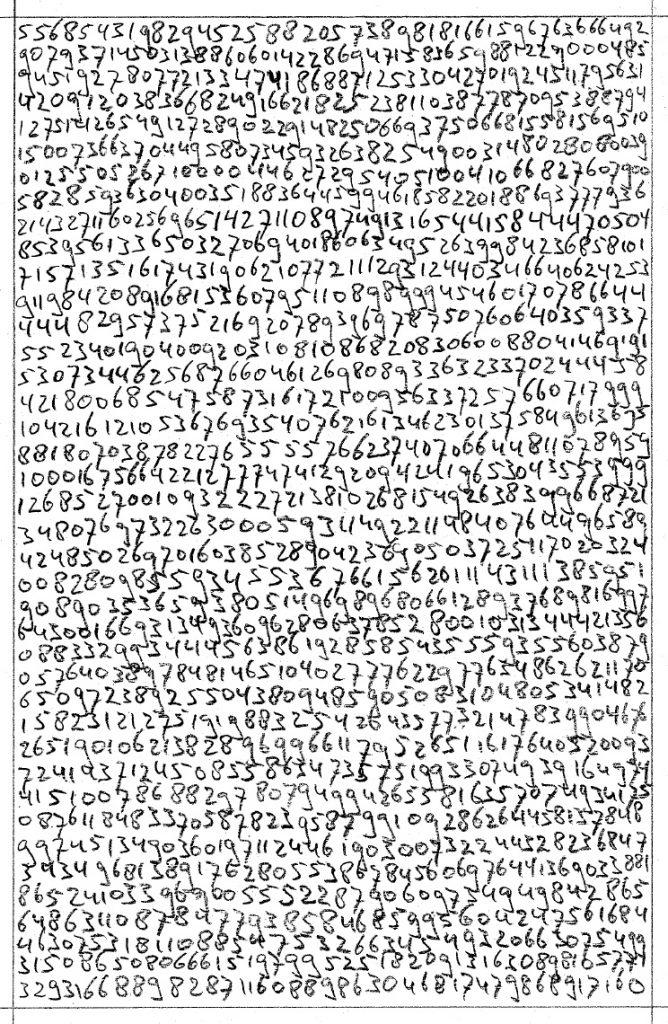 556854319829452588205738981816615967636664 92
9079371450313886060142286947158365988122900 0485
9451927807721334741868871253304270192451179 5631
4209120383668249166218252381103877870953887 94
1275142654912728902291482506693750668155815 69510
1500736637044958073459326382549003148028080039
0125505267100004462729540510041066827607900
5828593630400351883644599461858220188693777936
2143271160256965142711089749131654415844470504
853956133650327069401860634952639984236858101
7157135161743190621077211129312440346640624253
9119842089168153607951108989994546017078664 4
44482957375216920789396978750760640359337
5523401904000920310810868208306008804146919 1
5307344625687660461269808933632333702444458
4218006854758731617210095633725766071799 9
1042161210536769354076216134623013758496136 75
8818070387822763555576623740706644811078959
1000167566422127774741292094244196530435539 99
1268527001093222721381026815492638399668721
3480769732263000593449221148407644965 89
4248502697016038528904236905037251170203 24
0082809855934553676615620111431113859 51
9089035365938051496989680661289376898169 97
6430016693134936096280637852800103134442135 6
0883329934414563861928585435559355603879
0576403897848146510402777622977634862621170
6509723892550438094859050831048053414 82
1582312127519198832542843577321478399046 76
2651901062138289699661179528511617640520093
7224193712450855863473575199330749391649 74
4151007868829780794994265581635707493412 5
0876118483370587823958799109286264458137848
9974513490360197112446190300732244328236847
3434968138917628055386284560697644136903388 1
8652410339696005552287906097349498428 65
6486311087847793858468599560424756168 4
4630753181108854753266345493206630754 99
3150865080666151979952518209131630898165771
3293166889828711608898630468174798689171 60